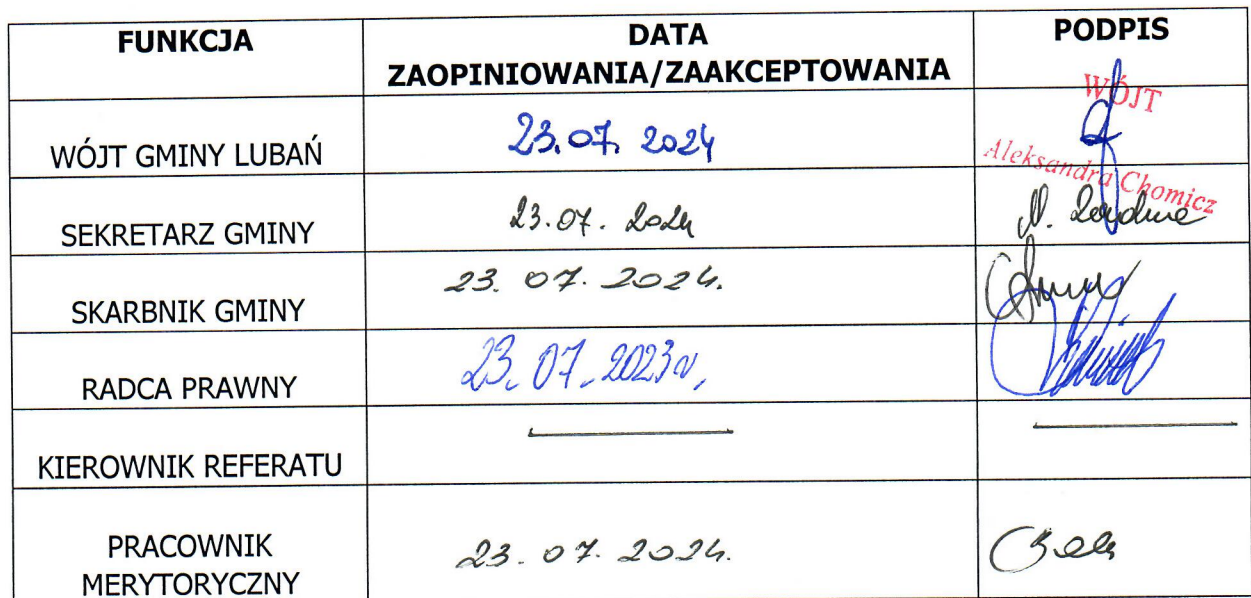 FUNKCJA
DATA
ZAOPINIOWANIA/ZAAKCEPTOWANIA
PODPIS
WÓJT GMINY LUBAŃ
23.07.2024
WÓJT
Aleksandra Chomicz
SEKRETARZ GMINY
23.07.2024
SKARBNIK GMINY
23.07.2024.
RADCA PRAWNY
23.07.2023r,
KIEROWNIK REFERATU
PRACOWNIK
MERYTORYCZNY
23.07.2024.